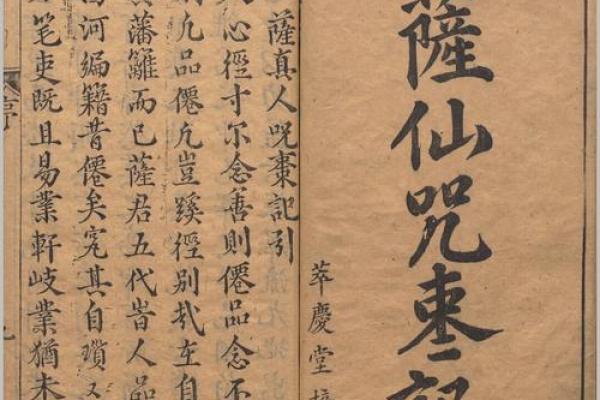 薩仙咒棗記
萃慶堂梓
薩真人咒棗記引
心徑寸尔念善則僊品念不
凡品僊凡豈蹊徑別㢤在自
藩籬而已薩君五代旹人品
河編籍昔僊矣究其自瑣又
筆吏既且易業軒岐業猶未